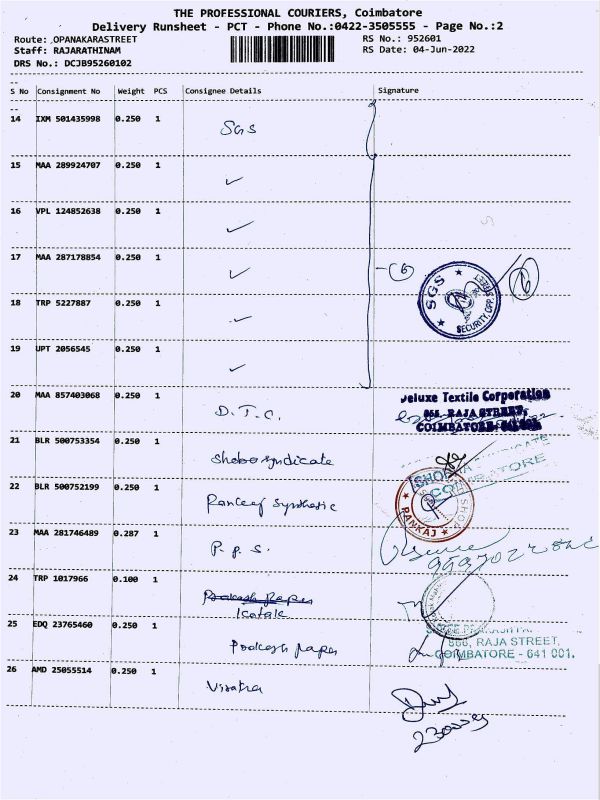 THE PROFESSIONAL COURIERS, Coimbatore
Delivery Runsheet - PCT - Phone No.:0422-3505555 - Page No.:2
Route: OPANAKARASTREET RS No.: 952601
Staff: RAJARATHINAM RS Date: 04-Jun-2022
DRS No.: DCJB95260102
S No Consignment No Weight PCS Consignee Details Signature
14 IXM 501435998 0.250 1 SGS
15 MAA 289924707 0.250 1 ✓
16 VPL 124852638 0.250 1 ✓
17 MAA 287178854 0.250 1 ✓ 6
SGS SECURITY, OPP. STREET
18 TRP 5227887 0.250 1 ✓
19 UPT 2056545 0.250 1 ✓
20 MAA 857403068 0.250 1 D.T.C.
Deluxe Textile Corporation
RAJA STREET,
COIMBATORE-641001
21 BLR 500753354 0.250 1 Shobo syndicate
22 BLR 500752199 0.250 1 Synthesic
PANKAJ
23 MAA 281746489 0.287 1 P.P.S.
24 TRP 1017966 0.100 1
25 EDQ 23765460 0.250 1 paper
866, RAJA STREET,
COIMBATORE - 641 001.
26 AMD 25055514 0.250 1